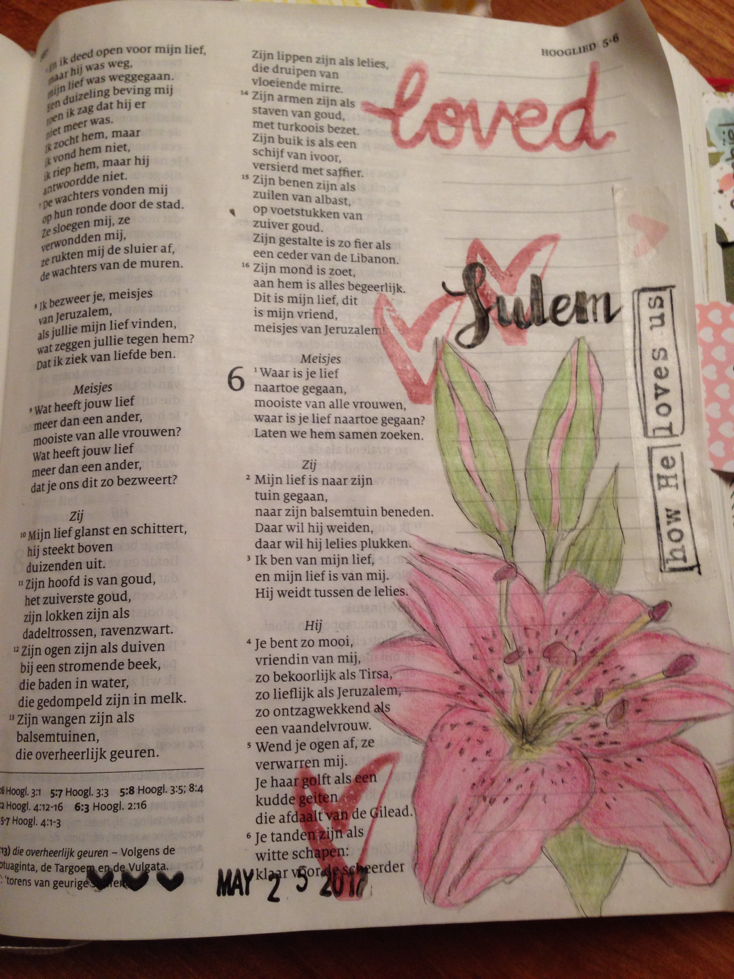 HOOGLIED 5·6
ik deed open voor mijn lief,
maar hij was weg,
mijn lief was weggegaan.
een duizeling beving mij
toen ik zag dat hij er
niet meer was.
Ik zocht hem, maar
ik vond hem niet,
ik riep hem, maar hij
antwoordde niet.
7 De wachters vonden mij
op hun ronde door de stad.
Ze sloegen mij, ze
verwondden mij,
ze rukten mij de sluier af,
de wachters van de muren.
8 Ik bezweer je, meisjes
van Jeruzalem,
als jullie mijn lief vinden,
wat zeggen jullie tegen hem?
Dat ik ziek van liefde ben.
Meisjes
9 Wat heeft jouw lief
meer dan een ander,
mooiste van alle vrouwen?
Wat heeft jouw lief
meer dan een ander,
dat je ons dit zo bezweert?
Zij
10 Mijn lief glanst en schittert,
hij steekt boven
duizenden uit.
11 Zijn hoofd is van goud,
het zuiverste goud,
zijn lokken zijn als
dadeltrossen, ravenzwart.
12 Zijn ogen zijn als duiven
bij een stromende beek,
die baden in water,
die gedompeld zijn in melk.
13 Zijn wangen zijn als
balsemtuinen,
die overheerlijk geuren.
Hoogl. 3:1 5:7 Hoogl. 3:3 5:8 Hoogl. 3:5; 8:4
Hoogl. 4:12-16 6:3 Hoogl. 2:16
Hoogl. 4:1-3
die overheerlijk geuren – Volgens de
de Targoem en de Vulgata.
'torens van geurige
Zijn lippen zijn als lelies,
die druipen van
vloeiende mirre.
14 Zijn armen zijn als
staven van goud,
met turkoois bezet.
Zijn buik is als een
schijf van ivoor,
versierd met saffier.
15 Zijn benen zijn als
zuilen van albast,
op voetstukken van
zuiver goud.
Zijn gestalte is zo fier als
een ceder van de Libanon.
16 Zijn mond is zoet,
aan hem is alles begeerlijk.
Dit is mijn lief, dit
is mijn vriend,
meisjes van Jeruzalem!
Meisjes
6 1 Waar is je lief
naartoe gegaan,
mooiste van alle vrouwen,
waar is je lief naartoe gegaan?
Laten we hem samen zoeken.
Zij
2 Mijn lief is naar zijn
tuin gegaan,
naar zijn balsemtuin beneden.
Daar wil hij weiden,
daar wil hij lelies plukken.
3 Ik ben van mijn lief,
en mijn lief is van mij.
Hij weidt tussen de lelies.
Hij
4 Je bent zo mooi,
vriendin van mij,
zo bekoorlijk als Tirsa,
zo lieflijk als Jeruzalem,
zo ontzagwekkend als
een vaandelvrouw.
5 Wend je ogen af, ze
verwarren mij.
Je haar golft als een
kudde geiten
die afdaalt van de Gilead.
6 Je tanden zijn als
witte schapen:
klaar voor de scheerder
MAY 25 2017
loved
Sulem
how He loves us